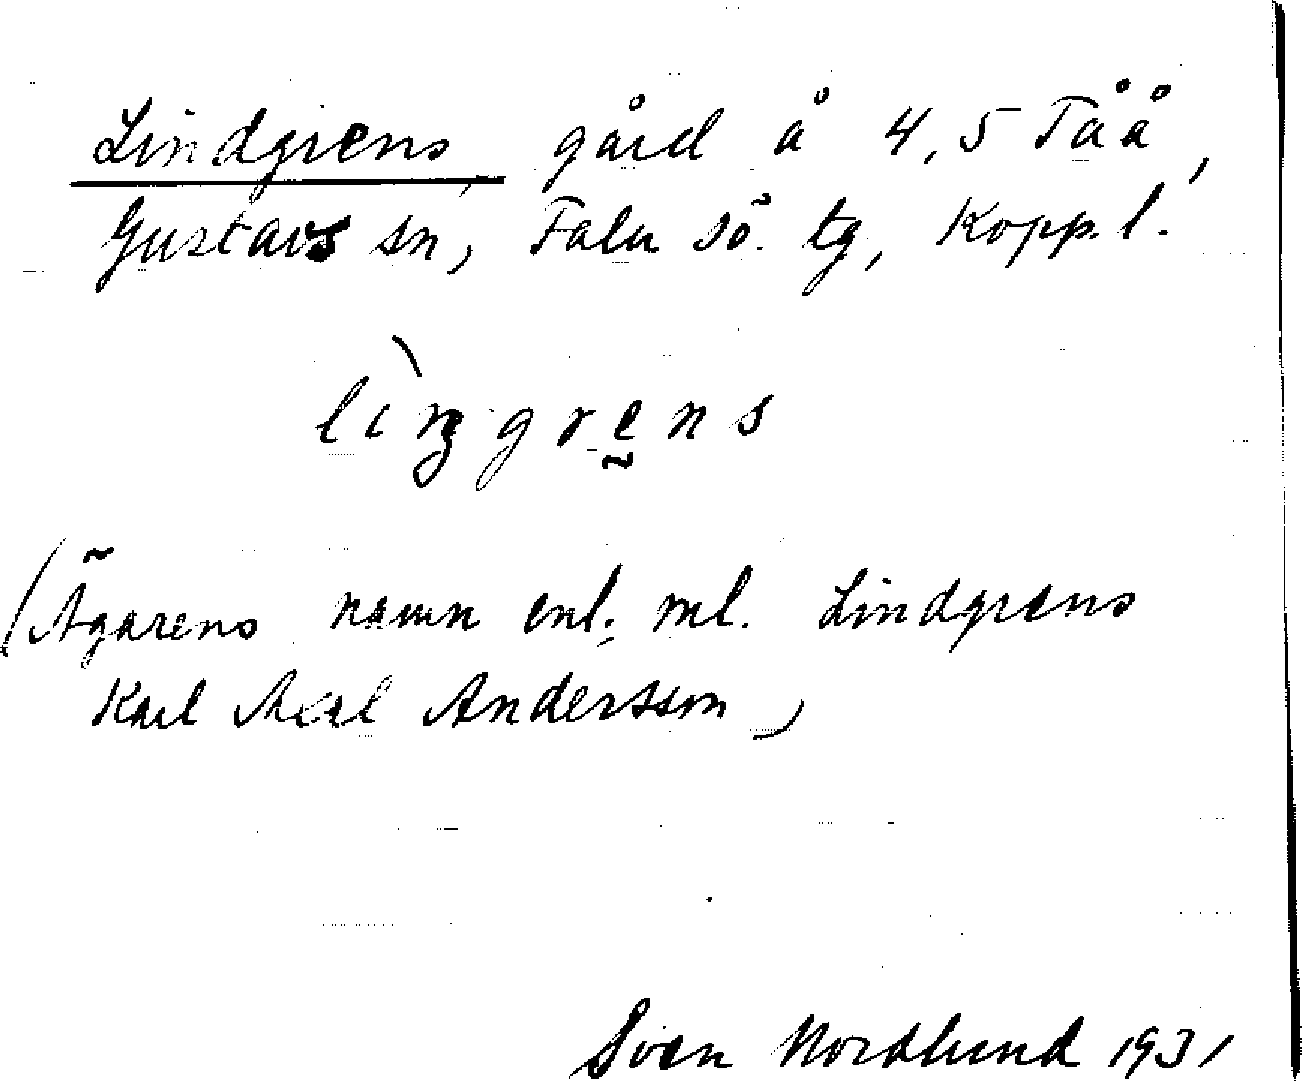 Lindgrens, gård å 4,5 Tåå,
Gustavs sn, Falu sö. tg, Kopp. l.
lìŋgrens
(Ägarens namn enl. ml. Lindgrens
Karl Axel Andersson)
Sven Nordlund 1931